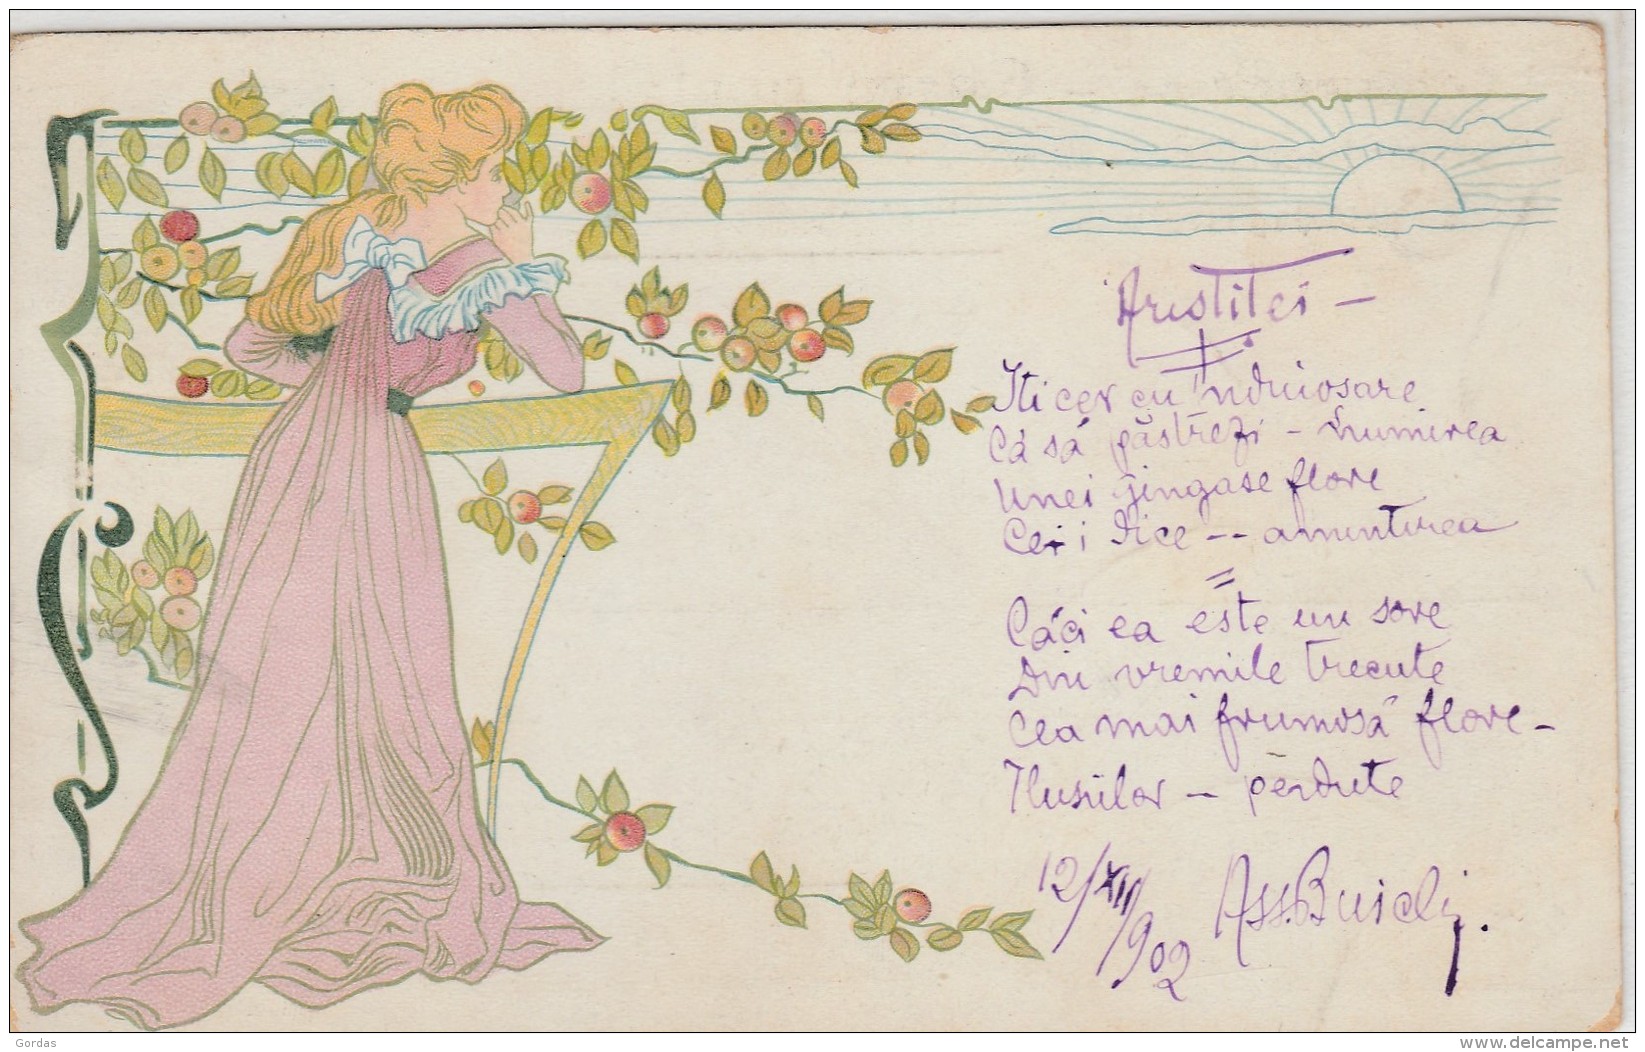 Aristiței —
Iți cer cu 'nduioșare
Cá sá pástrezi – 'nșirea
Unei gingașe flore
Ce-i dice -- amintirea
=
Căci ea este un sore
Din vremile trecute
Cea mai frumósă flore –
Ilusiilor – perdute
12/XII/902
Gordas
www.delcampe.net